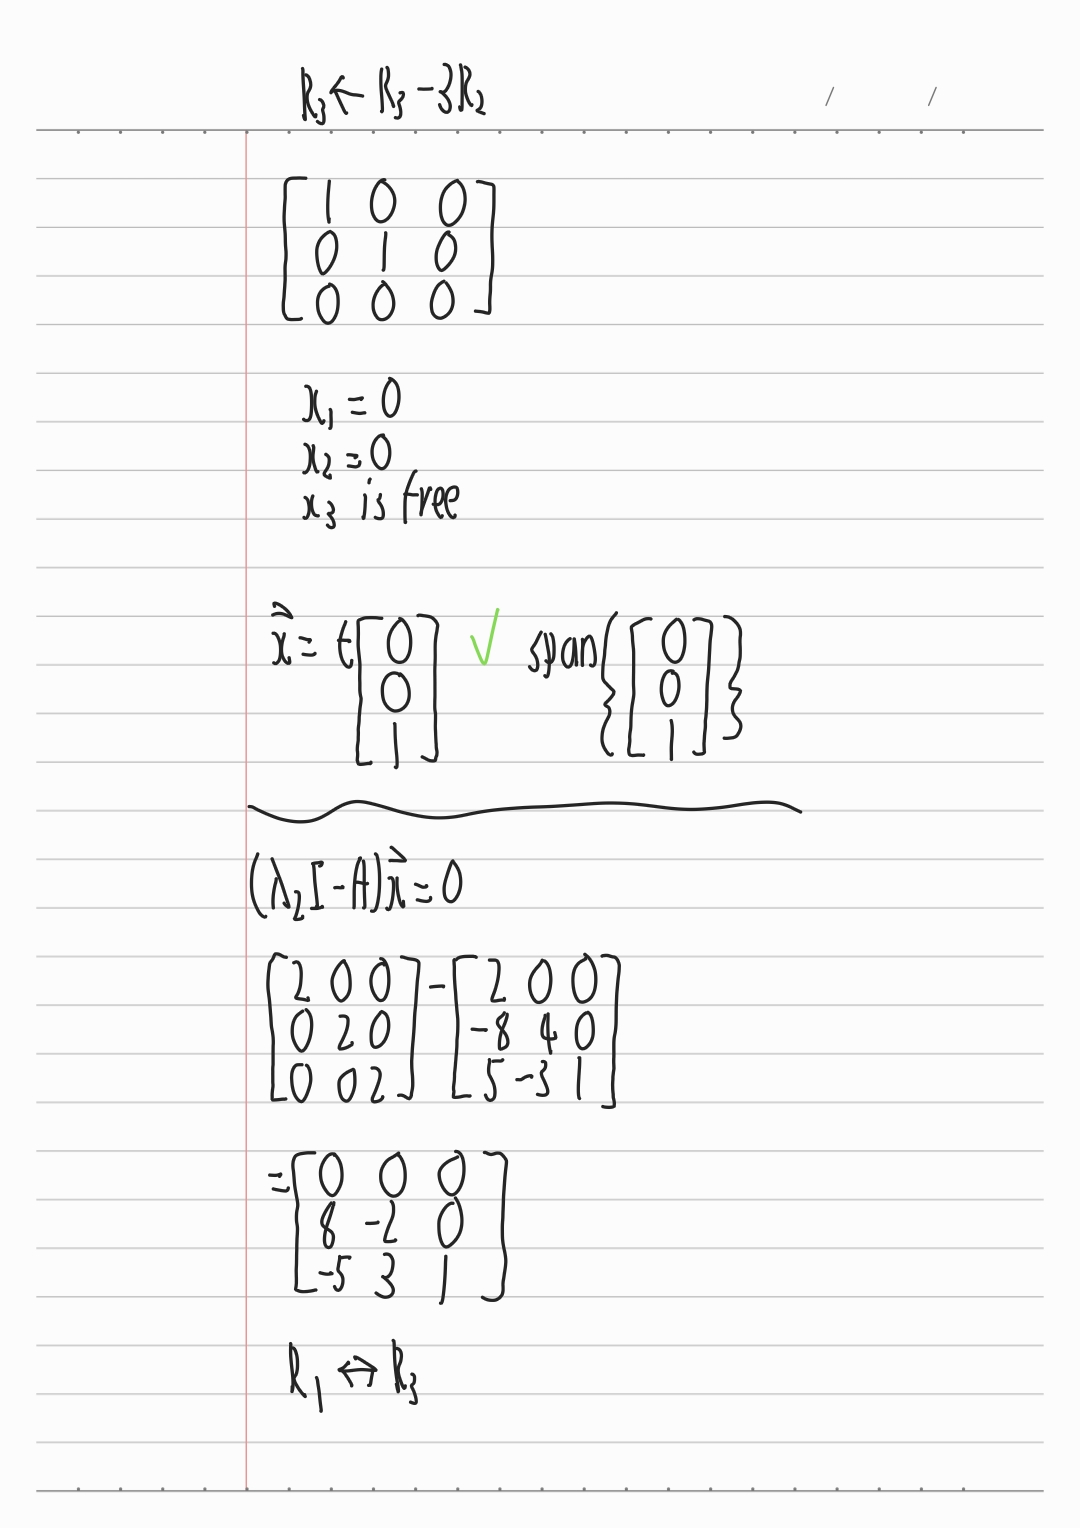 R₃ ← R₃ - 3R₂
/ /
[ 1 0 0
0 1 0
0 0 0 ]
x₁ = 0
x₂ = 0
x₃ is free
x⃗ = t [ 0 0 1 ] ✓ span { [ 0 0 1 ] }
(λ₂I - A)x⃗ = 0
[ 2 0 0 ] - [ 2 0 0 ]
[ 0 2 0 ] [ -8 4 0 ]
[ 0 0 2 ] [ 5 -3 1 ]
= [ 0 0 0
8 -2 0
-5 3 1 ]
R₁ ↔ R₃